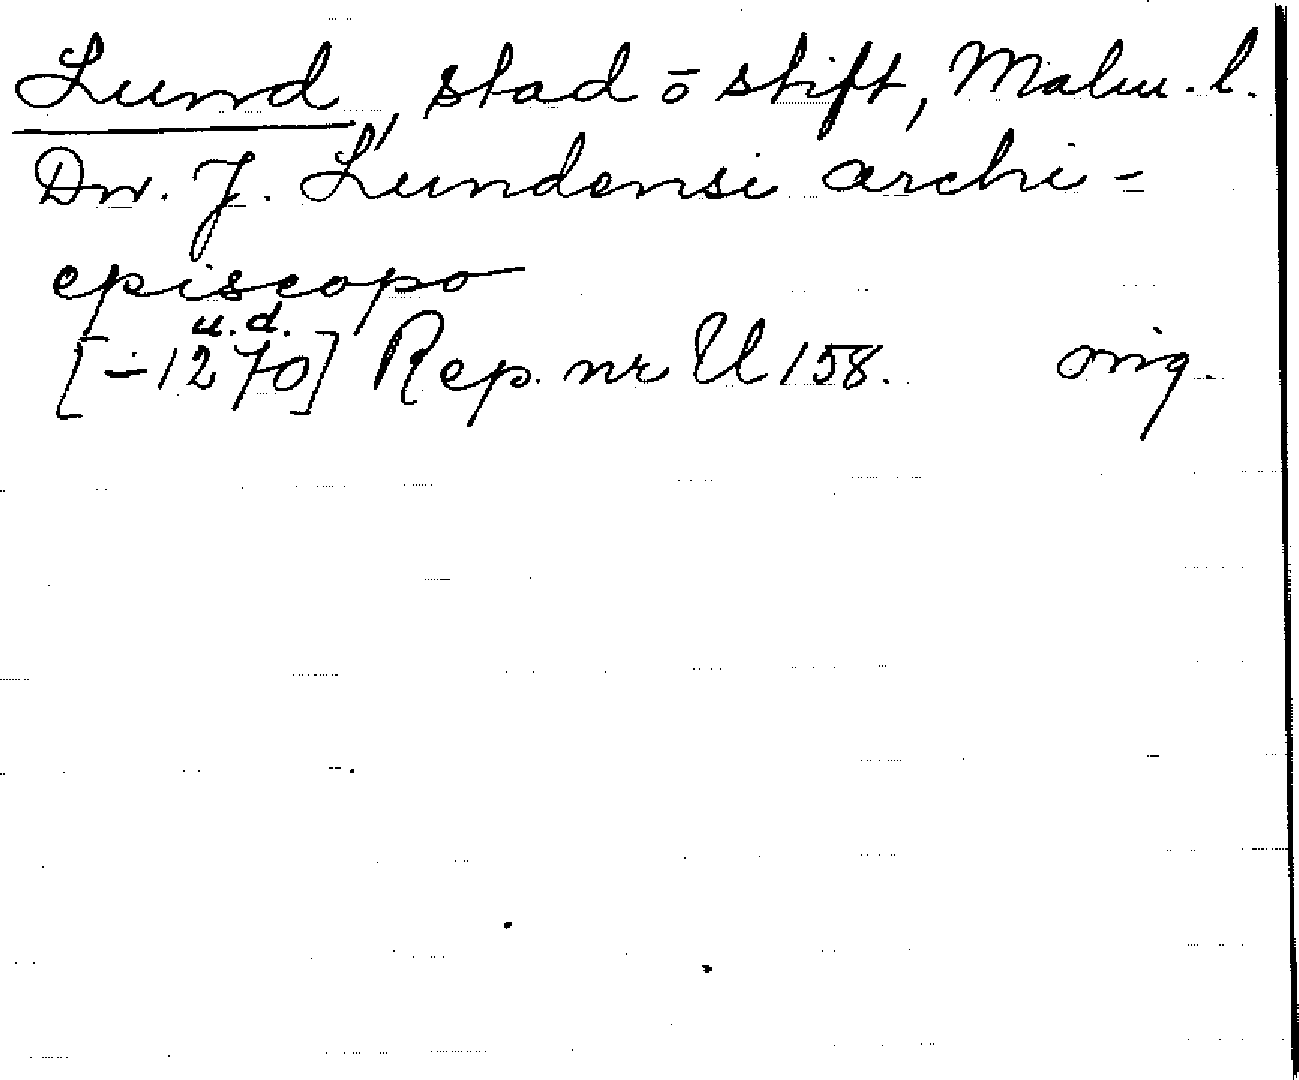 Lund, stad o stift, Malm. l.
Dn. J. Lundensi archi-
episcopo
u. d.
[-1270] Rep. nr U 158. orig.